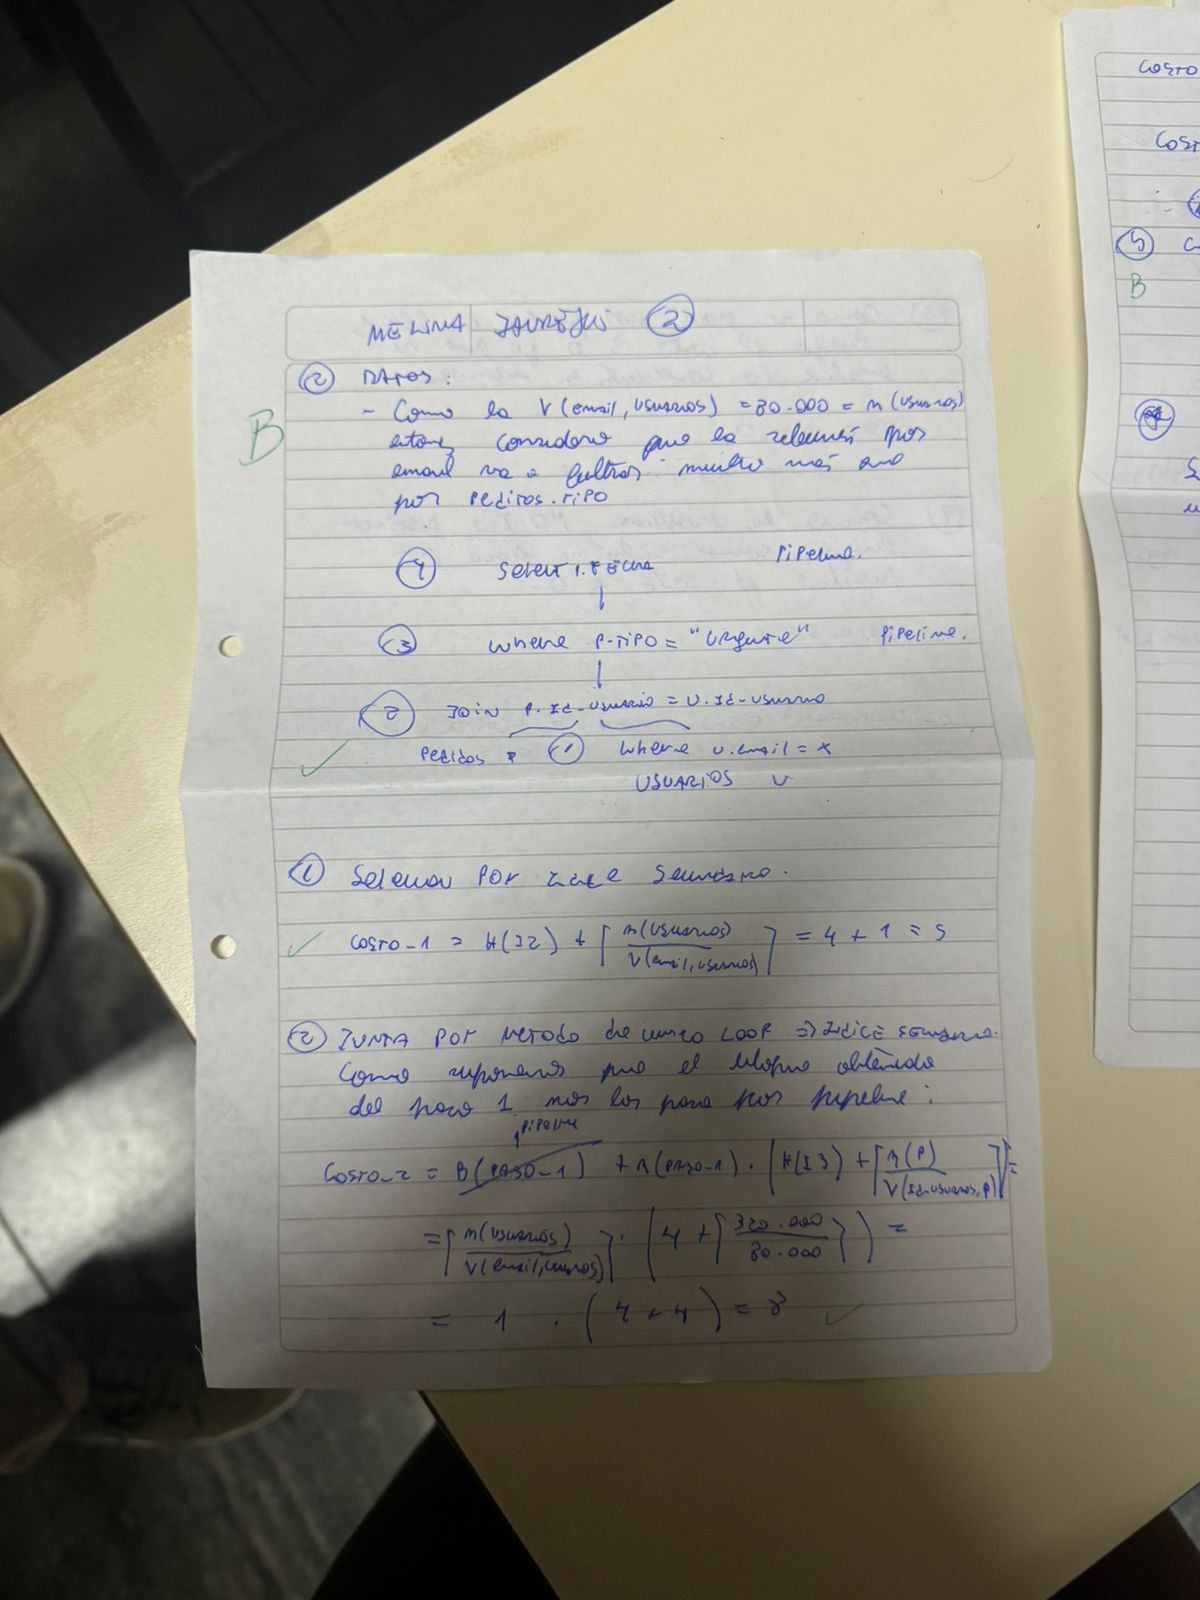 MELINA JAUREJUI 2
2 DATOS:
B
- Como la V(email, usuarios) = 80.000 = n(usuarios)
entonces considero que la selección por
email va a filtrar mucho más que
por pedidos.TIPO
4 SELECT P.FECHA Pipeline.
3 where P.TIPO = "Urgente" Pipeline.
2 JOIN P.Id_usuario = U.Id_usuario
Pedidos P 1 where u.email = x
USUARIOS U
1 Seleccion por indice secundario.
COSTO_1 = H(I2) + ⌈n(usuarios) / V(email, usuarios)⌉ = 4 + 1 = 5
2 JUNTA POR METODO de unico LOOP => INDICE secundario.
Como suponemos que el bloque obtenido
del paso 1 nos lo pasa por pipeline:
pipeline
COSTO_2 = B(PASO_1) + n(PASO_1) . (H(I3) + ⌈n(P) / V(Id_usuarios, P)⌉) =
= ⌈n(usuarios) / V(email, usuarios)⌉ . (4 + ⌈320.000 / 80.000⌉) =
= 1 . (4 + 4) = 8
COSTO
COST
5 C
B